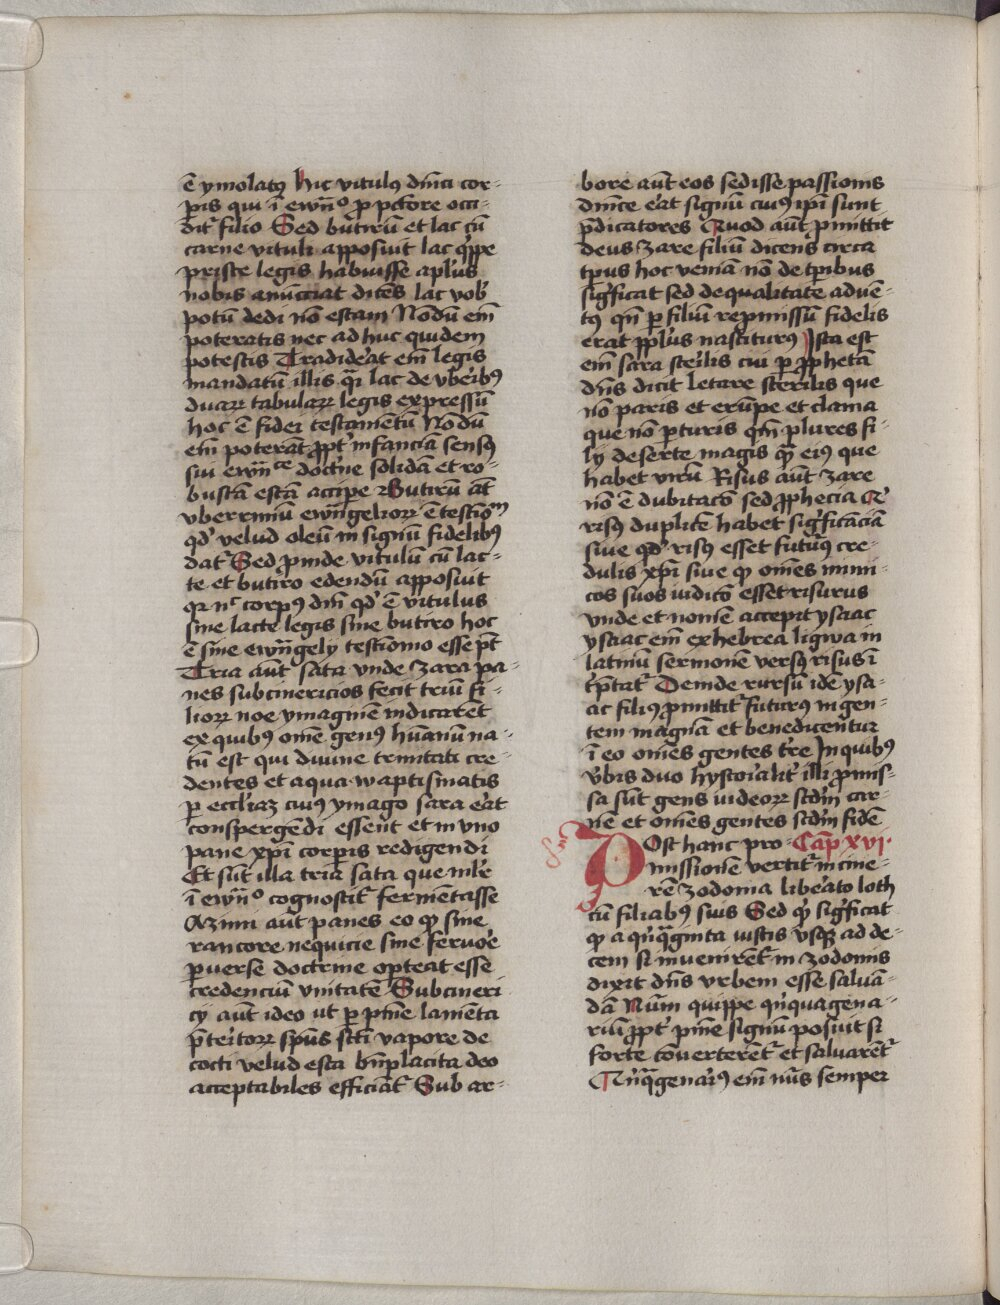 ē ymolatꝰ hic vitulꝰ dn̄ici cor-
pis qui ī ewn̄º ꝓ pctore occi-
dit᷑ filio Sed butirū et lac cū
carne vituli apposuit lac q̄ppe
priste legis habuisse aplus
nobis anūcciat dicēs lac vob᷑
potū dedi nō estam Nōdū em̄
poteratis nec ad huc quidem
potestis Tradidēat em̄ legis
mandatū illis q̄ı lac de vbēibꝰ
duaꝝ tabulaꝝ legis expressū
hoc ē fidei testamētū Nōdū
em̄ poterāt ꝓpt᷑ infanciā sensꝰ
sui ewn̄ce doctᷓne solidā et ro-
bustā estā accipe Butirū āt
vberrimū ewn̄gelioꝝ ē testiom̄
qd᷑ velud oleū in signū fidelibꝰ
dat᷑ Sed ꝓinde vitulū cū lac-
te et butiro edendū apposuit
qꝛ nc corpꝰ dm̄ qd᷑ ē vitulus
sine lacte legis sine butiro hoc
ē sine ewn̄gely testiōnio esse pt̄
Tria aūt sata vnde zara pa-
nes subcinericios fecit triū fi-
lioꝝ noe ymaginē indicarēt
ex quibꝰ omē genꝰ hūanū na-
tū est qui diuine trinitati cre-
dentes et aqua waptismatis
ꝑ eccl̄iaz cuiꝰ ymago sara eāt
conspergēdi essent et in vno
pane xp̄i corpis redigendi
Et sūt illa tria sata que ml᷑r
ī ewn̄º cognoscit᷑ fermētasse
Azimi aūt panes eo ꝙ sine
rancore nequicie sine feruoē
ꝑuerse doctrine opteat esse
credenciū vnitatē Subcineri
cy aūt ideo ut ꝑ pnīe lamēta
p̄teritoꝝ spūs sc̄ti vapore de
cocti velud esca bn̄placita deo
acceptabiles efficiāt᷑ Sub ar-
bore aūt eos sedisse passionis
dnīce eāt signū cuiꝰ ipī sunt
p̄dicatores Quod aūt ꝓmittit
deus zare filiū dicens circa
tpus hoc veniā nō de tp̄ibus
sigᷓficat sed de qualitate aduē-
tꝰ qn̄ ꝑ filiū repmissū fidelis
erat pp̄lus nasciturꝰ Ista est
em̄ sara sterilis cui ꝑ ꝓphetā
dn̄s dicit letare sterilis que
nō paris et erūpe et clama
que nō ꝑturis qm̄ plures fi-
ly deserte magis q̄ eiꝰ que
habet virū Risus aūt zare
nō ē dubitacō sed ꝓphecia Et
risꝰ duplicē habet sigᷓficaciā
siue qd᷑ risꝰ esset futurꝰ cre-
dulis xp̄i siue ꝙ omēs inimi-
cos suos iudicō esset risurus
vnde et nomē accepit ysaac
ysaac em̄ ex hebrea ligwa in
latinū sermonē versꝰ risus ī
t᷑p̄tat᷑ Deinde rursū idē ysa-
ac filiꝰ ꝓmittit᷑ futurꝰ in gen-
tem magnā et benedicentur
ī eo omēs gentes tr̄e In quibꝰ
v̄bis duo hystoīalit᷑ illi ꝓmis-
sa sūt gens iudeoꝝ scd̄m car-
nē et omēs gentes scd̄m fidē
Post hanc pro- Cap̄ xvi
missionē vertit᷑ in cine-
rē zodoma libēato loth
cū filiabꝰ suis Sed qd᷑ sigᷓficat
ꝙ a qnᷓq̄ginta iustis vsqꝫ ad de-
cem si inuenirēt᷑ in zodomis
dixit dn̄s vrbem esse saluā-
dā Nūm quippe qnᷓquagena-
riū ꝓpt᷑ pnīe signū posuit si
forte conuerterēt᷑ et saluarēt᷑
Qnᷓq̄genaīꝰ em̄ nūs semper